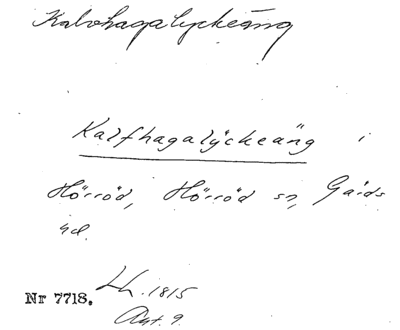 Kalvhagalyckeäng
Kalfhagalÿckeäng i
Hörröd, Hörröd sn, Gärds
hd.
Lh. 1815
Nr 7718.
Akt. 9